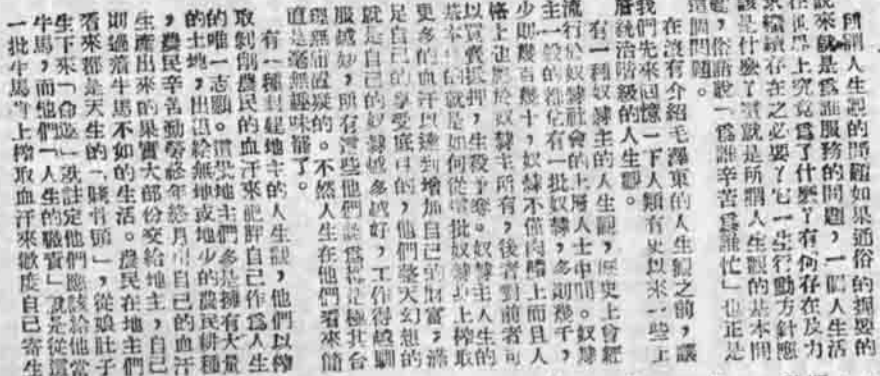 所謂人生觀的問題如果通俗的扼要的
說來就是爲誰服務的問題，一個人生活
在世界上究竟爲了什麽？有何存在及力
求繼續存在之必要？它一生行動方針應
該是什麽？這就是所謂人生觀的基本問
題，俗語說「爲誰辛苦爲誰忙」也正是
這個問題。
在沒有介紹毛澤東的人生觀之前，讓
我們先來回憶一下人類有史以來一些上
層統治階級的人生觀。
有一種奴隸主的人生觀，歷史上曾經
流行於奴隸社會的上層人士中間。奴隸
主一般的都佔有一批奴隸，多則幾千，
少則幾百幾十，奴隸不僅肉體上而且人
格上也屬於奴隸主所有，後者對前者可
以買賣抵押，生殺予奪。奴隸主人生的
基本目的就是如何從這批奴隸身上榨取
更多的血汗以達到增加自己的財富，滿
足自己的享受底目的，他們整天幻想的
就是自己的奴隸越多越好，工作得越馴
服越妙，所有這些他們認爲都是極其合
理無可置疑的。不然人生在他們看來簡
直是毫無趣味罷了。
有一種封建地主的人生觀，他們以榨
取剝削農民的血汗來肥胖自己作爲人生
的唯一志願。這些地主們多是擁有大量
的土地，出租給無地或地少的農民耕種
，農民辛苦勤勞終年終月用自己的血汗
生產出來的果實大部份交給地主，自己
則過着牛馬不如的生活。農民在地主們
看來都是天生的「賤骨頭」，從娘肚子
生下來「命運」就註定他們應該給他當
牛馬，而他們「人生的職責」就是從這
一批牛馬身上榨取血汗來歡度自己寄生